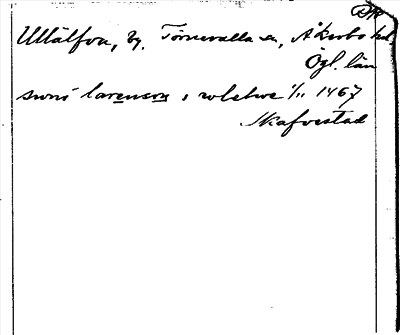 Ullälfva, by, Törnevalla sn, Åkerbo hd.
Ögl. län
swni larenson i wlelwe 1/11 1467
Skafvestad